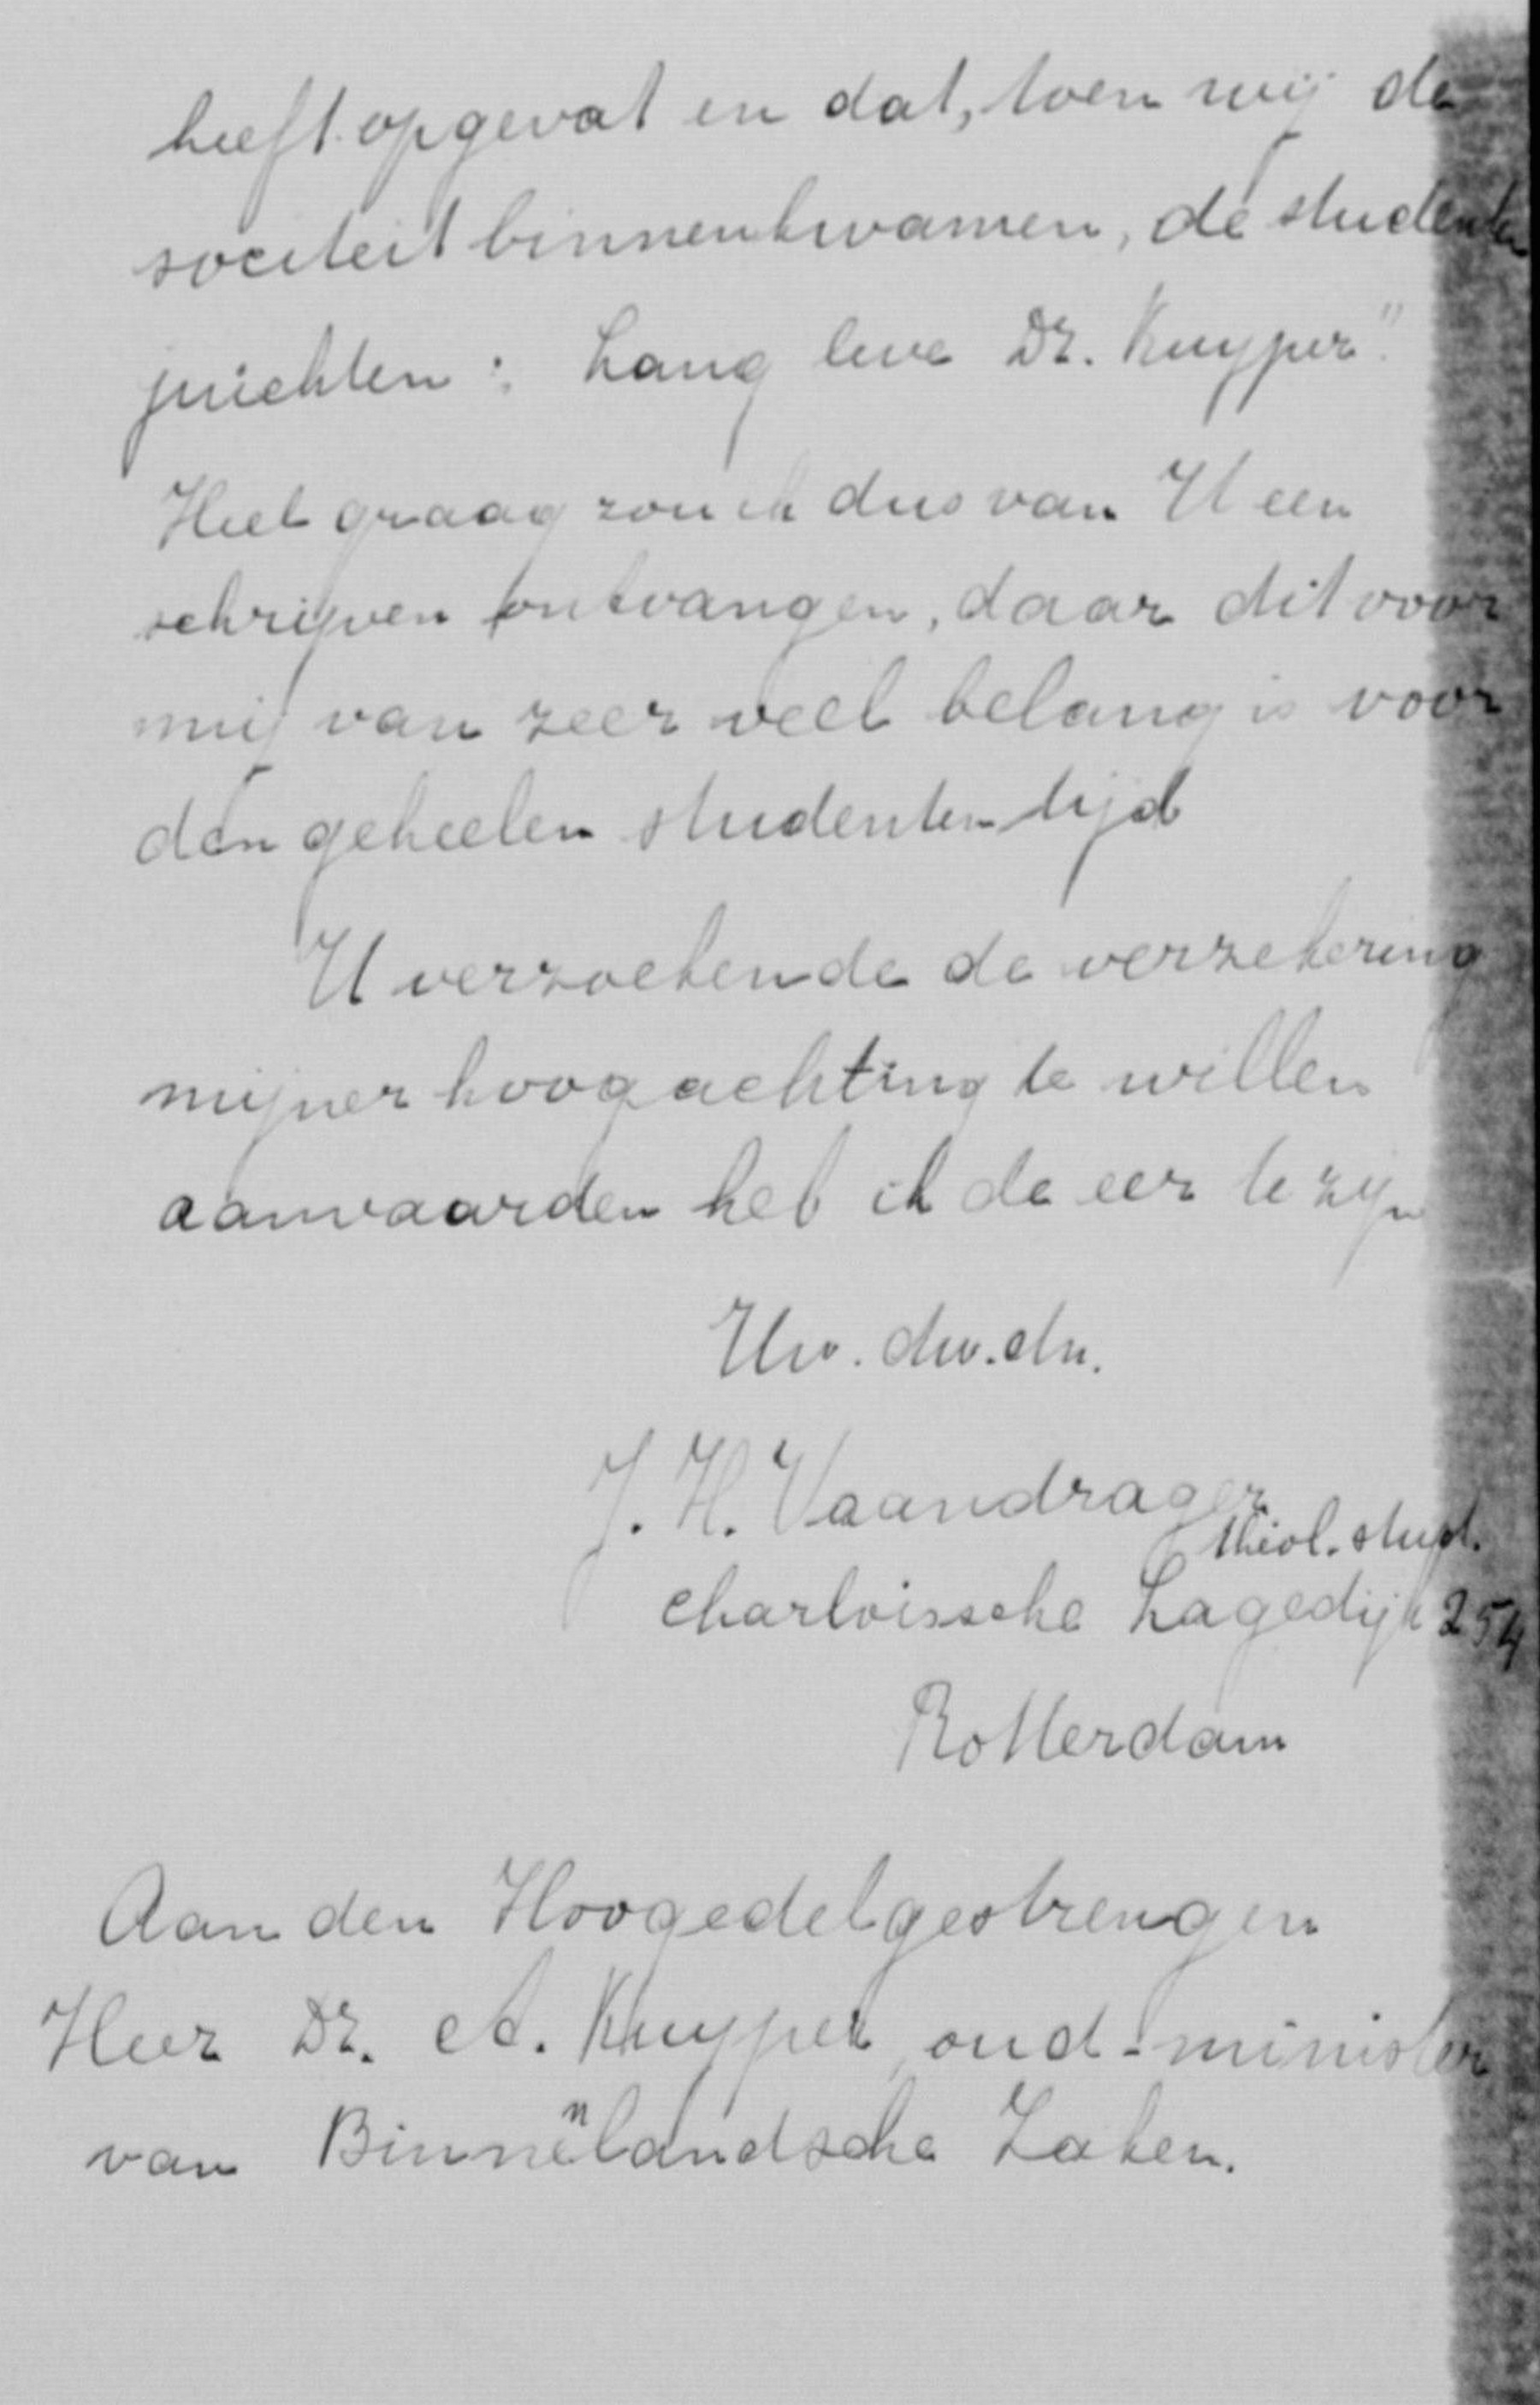 heeft opgevat en dat, toen wij de
sociteit binnenkwamen, de studenten
juichten: Lang leve Dr. Kuyper"
Heel graag zou ik dus van U een
schrijven ontvangen, daar dit voor
mij van zeer veel belang is voor
den geheelen studententijd
U verzoekende de verzekering
mijner hoogachting te willen
aanvaarden heb ik de eer te zijn
Uw. dw. dn.
J. H. Vaandrager
theol. stud.
Charloissche Lagedijk 254
Rotterdam
Aan den Hoogedelgestrengen
Heer Dr. A. Kuyper, oud-minister
van Binnenlandsche Zaken.